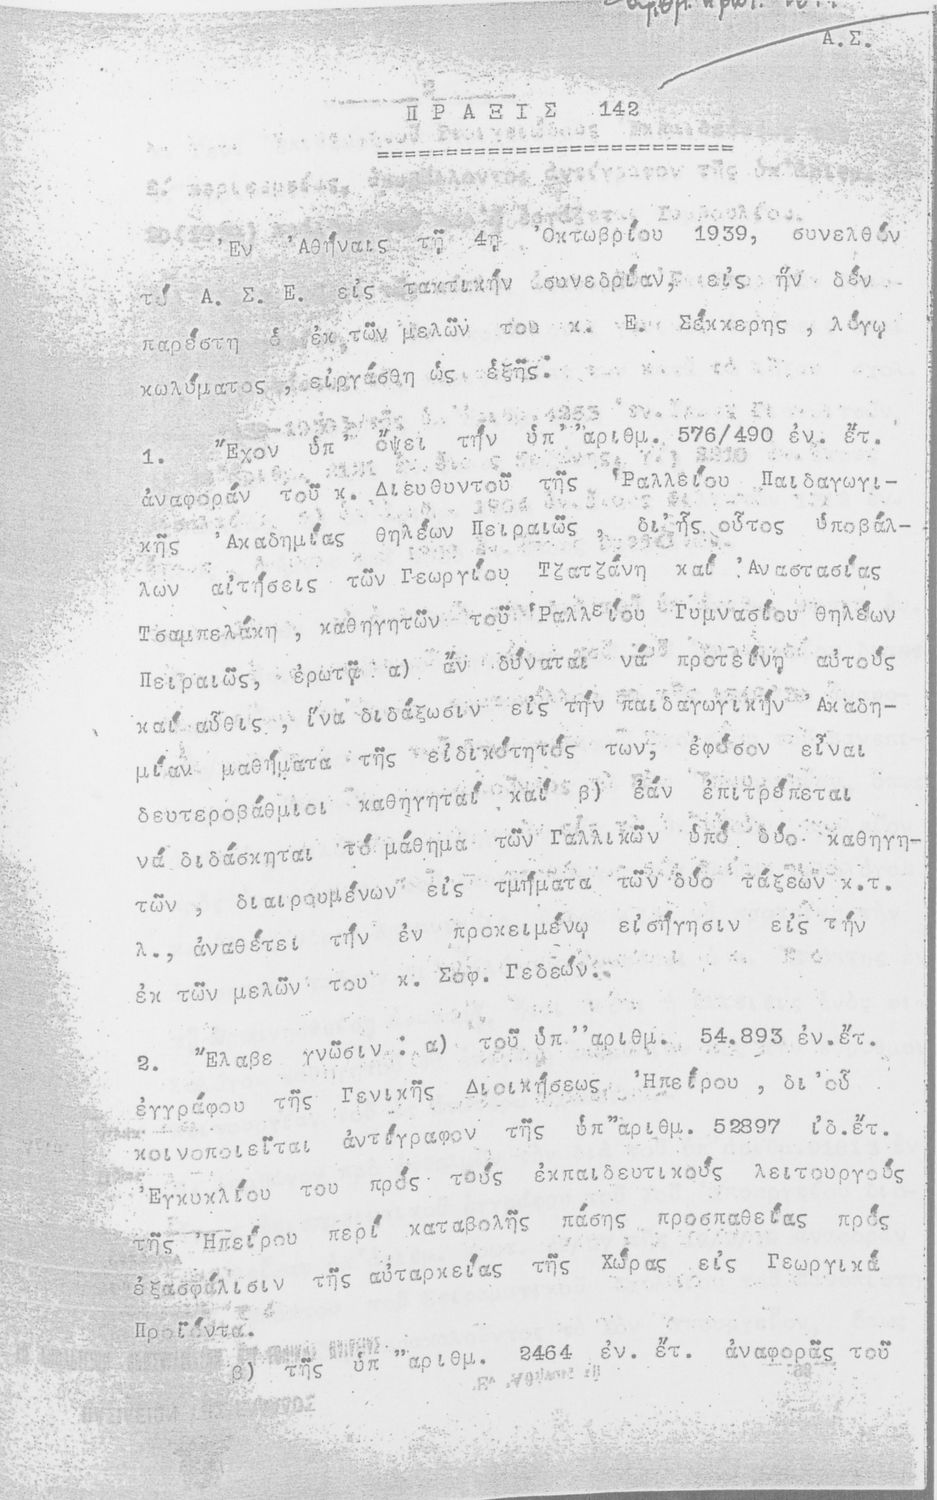 Α.Σ.
Π Ρ Α Ξ Ι Σ 142
==========================
Ἐν Ἀθήναις τῇ 4ῃ Ὀκτωβρίου 1939, συνελθόν
τό Α. Σ. Ε. εἰς τακτικήν συνεδρίαν, εἰς ἥν δέν
παρέστη ὁ ἐκ τῶν μελῶν του κ. Ε. Σέκκερης , λόγῳ
κωλύματος , εἰργάσθη ὡς ἑξῆς:
1. Ἔχον ὑπ' ὄψει τήν ὑπ' ἀριθμ. 576/490 ἐν. ἔτ.
ἀναφοράν τοῦ κ. Διευθυντοῦ τῆς Ῥαλλείου Παιδαγωγι-
κῆς Ἀκαδημίας θηλέων Πειραιῶς , δι' ἧς οὗτος ὑποβάλ-
λων αἰτήσεις τῶν Γεωργίου Τζατζάνη καί Ἀναστασίας
Τσαμπελάκη , καθηγητῶν τοῦ Ῥαλλείου Γυμνασίου θηλέων
Πειραιῶς, ἐρωτᾷ α) ἄν δύναται νά προτείνῃ αὐτούς
καί αὖθις , ἵνα διδάξωσιν εἰς τήν παιδαγωγικήν Ἀκαδη-
μίαν μαθήματα τῆς εἰδικότητός των, ἐφόσον εἶναι
δευτεροβάθμιοι καθηγηταί καί β) ἐάν ἐπιτρέπεται
νά διδάσκηται τό μάθημα τῶν Γαλλικῶν ὑπό δύο καθηγη-
τῶν , διαιρουμένων εἰς τμήματα τῶν δύο τάξεων κ.τ.
λ., ἀναθέτει τήν ἐν προκειμένῳ εἰσήγησιν εἰς τήν
ἐκ τῶν μελῶν του κ. Σοφ. Γεδεών.
2. Ἔλαβε γνῶσιν : α) τοῦ ὑπ' ἀριθμ. 54.893 ἐν.ἔτ.
ἐγγράφου τῆς Γενικῆς Διοικήσεως Ἠπείρου , δι' οὗ
κοινοποιεῖται ἀντίγραφον τῆς ὑπ' ἀριθμ. 52897 ἰδ.ἔτ.
Ἐγκυκλίου του πρός τούς ἐκπαιδευτικούς λειτουργούς
τῆς Ἠπείρου περί καταβολῆς πάσης προσπαθείας πρός
ἐξασφάλισιν τῆς αὐταρκείας τῆς Χώρας εἰς Γεωργικά
Προϊόντα.
β) τῆς ὑπ' ἀριθμ. 2464 ἐν. ἔτ. ἀναφορᾶς τοῦ